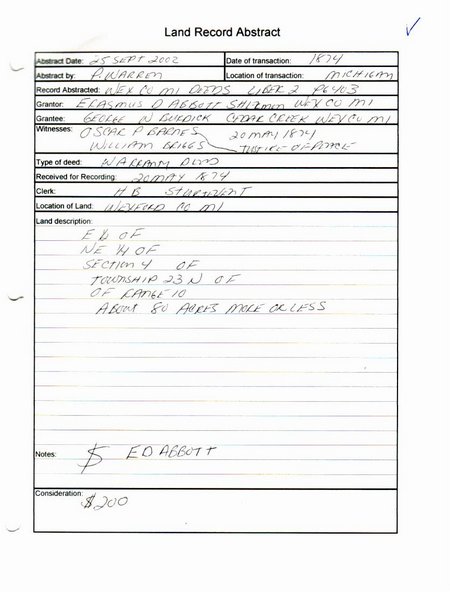 Land Record Abstract
Abstract Date: 25 SEPT 2002 Date of transaction: 1874
Abstract by: P. WARREN Location of transaction: MICHIGAN
Record Abstracted: WEX CO MI DEEDS LIBER 2 PG 403
Grantor: ERASMUS D ABBOTT SHERMAN WEX CO MI
Grantee: GEORGE W BURDICK CEDAR CREEK WEX CO MI
Witnesses: OSCAR P BARNES 20 MAY 1874
WILLIAM BRIGGS JUSTICE OF PEACE
Type of deed: WARRANTY DEED
Received for Recording: 20 MAY 1874
Clerk: H B STURTEVENT
Location of Land: WEXFORD CO MI
Land description:
E ½ OF
NE ¼ OF
SECTION 4 OF
TOWNSHIP 23 N OF
OF RANGE 10
ABOUT 80 ACRES MORE OR LESS
Notes: $ E D ABBOTT
Consideration:
$200